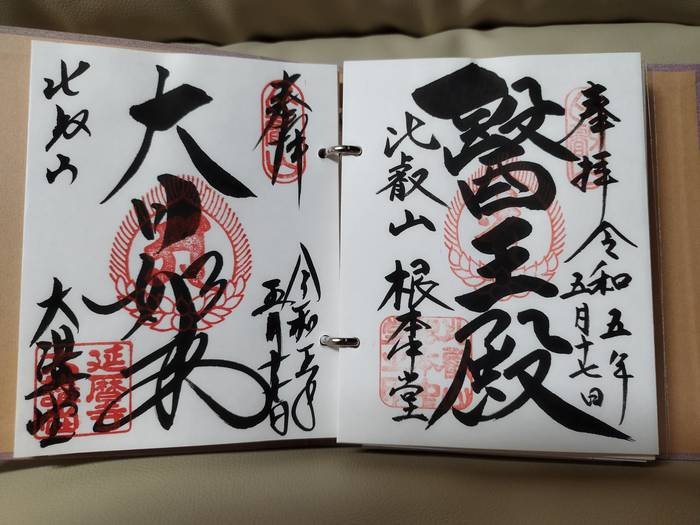 奉拝
令和五年
五月十七日
醫王殿
比叡山
根本中堂
奉拝
令和五年
五月十七日
大日如来
比叡山
大講堂
延暦寺